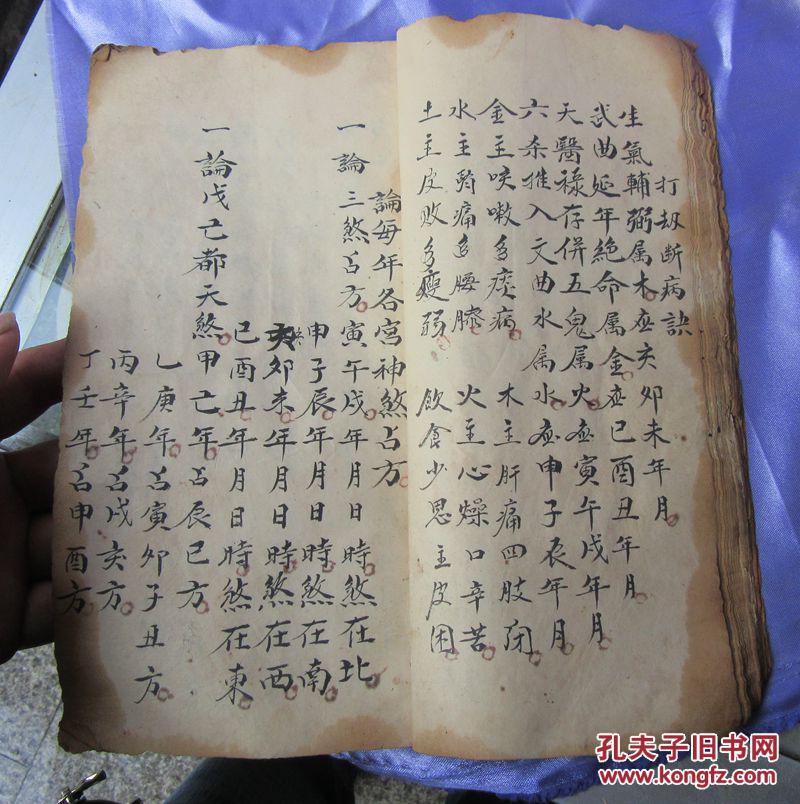 打刼断病訣
生氣輔弼属木应亥卯未年月
武曲延年絶命属金应巳酉丑年月
天醫禄存併五鬼属火应寅午戌年月
六杀推入文曲水属水应申子辰年月
金主咳嗽多痰病 木主肝痛四肢闭
水主腎痛多腰膝 火主心燥口辛苦
土主皮败多瘦弱 飲食少思主皮困
論每年各宮神煞占方
一論三煞占方寅午戌年月日時煞在北
申子辰年月日時煞在南
亥卯未年月日時煞在西
巳酉丑年月日時煞在東
一論戊己都天煞甲己年占辰巳方
乙庚年占寅卯子丑方
丙辛年占戌亥方
丁壬年占申酉方
孔夫子旧书网
www.kongfz.com